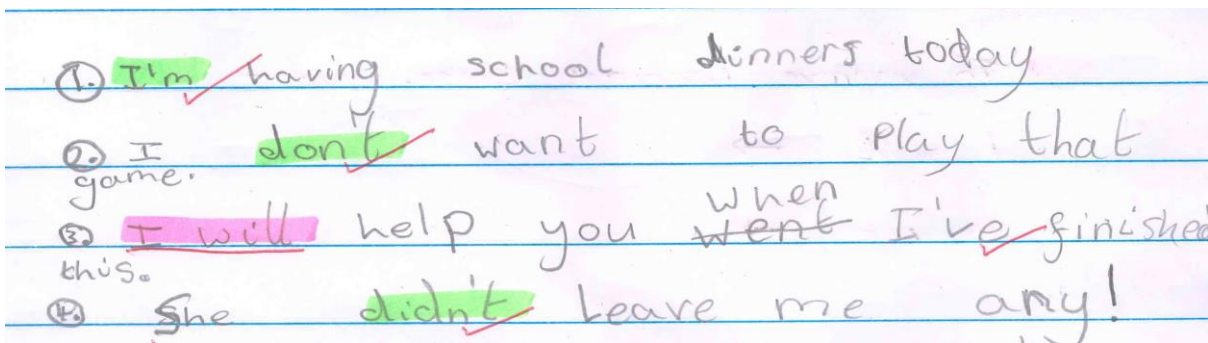 1. I'm having school dinners today
2. I don't want to play that
game.
when
3. I will help you went I've finished
this.
4. She didn't leave me any!